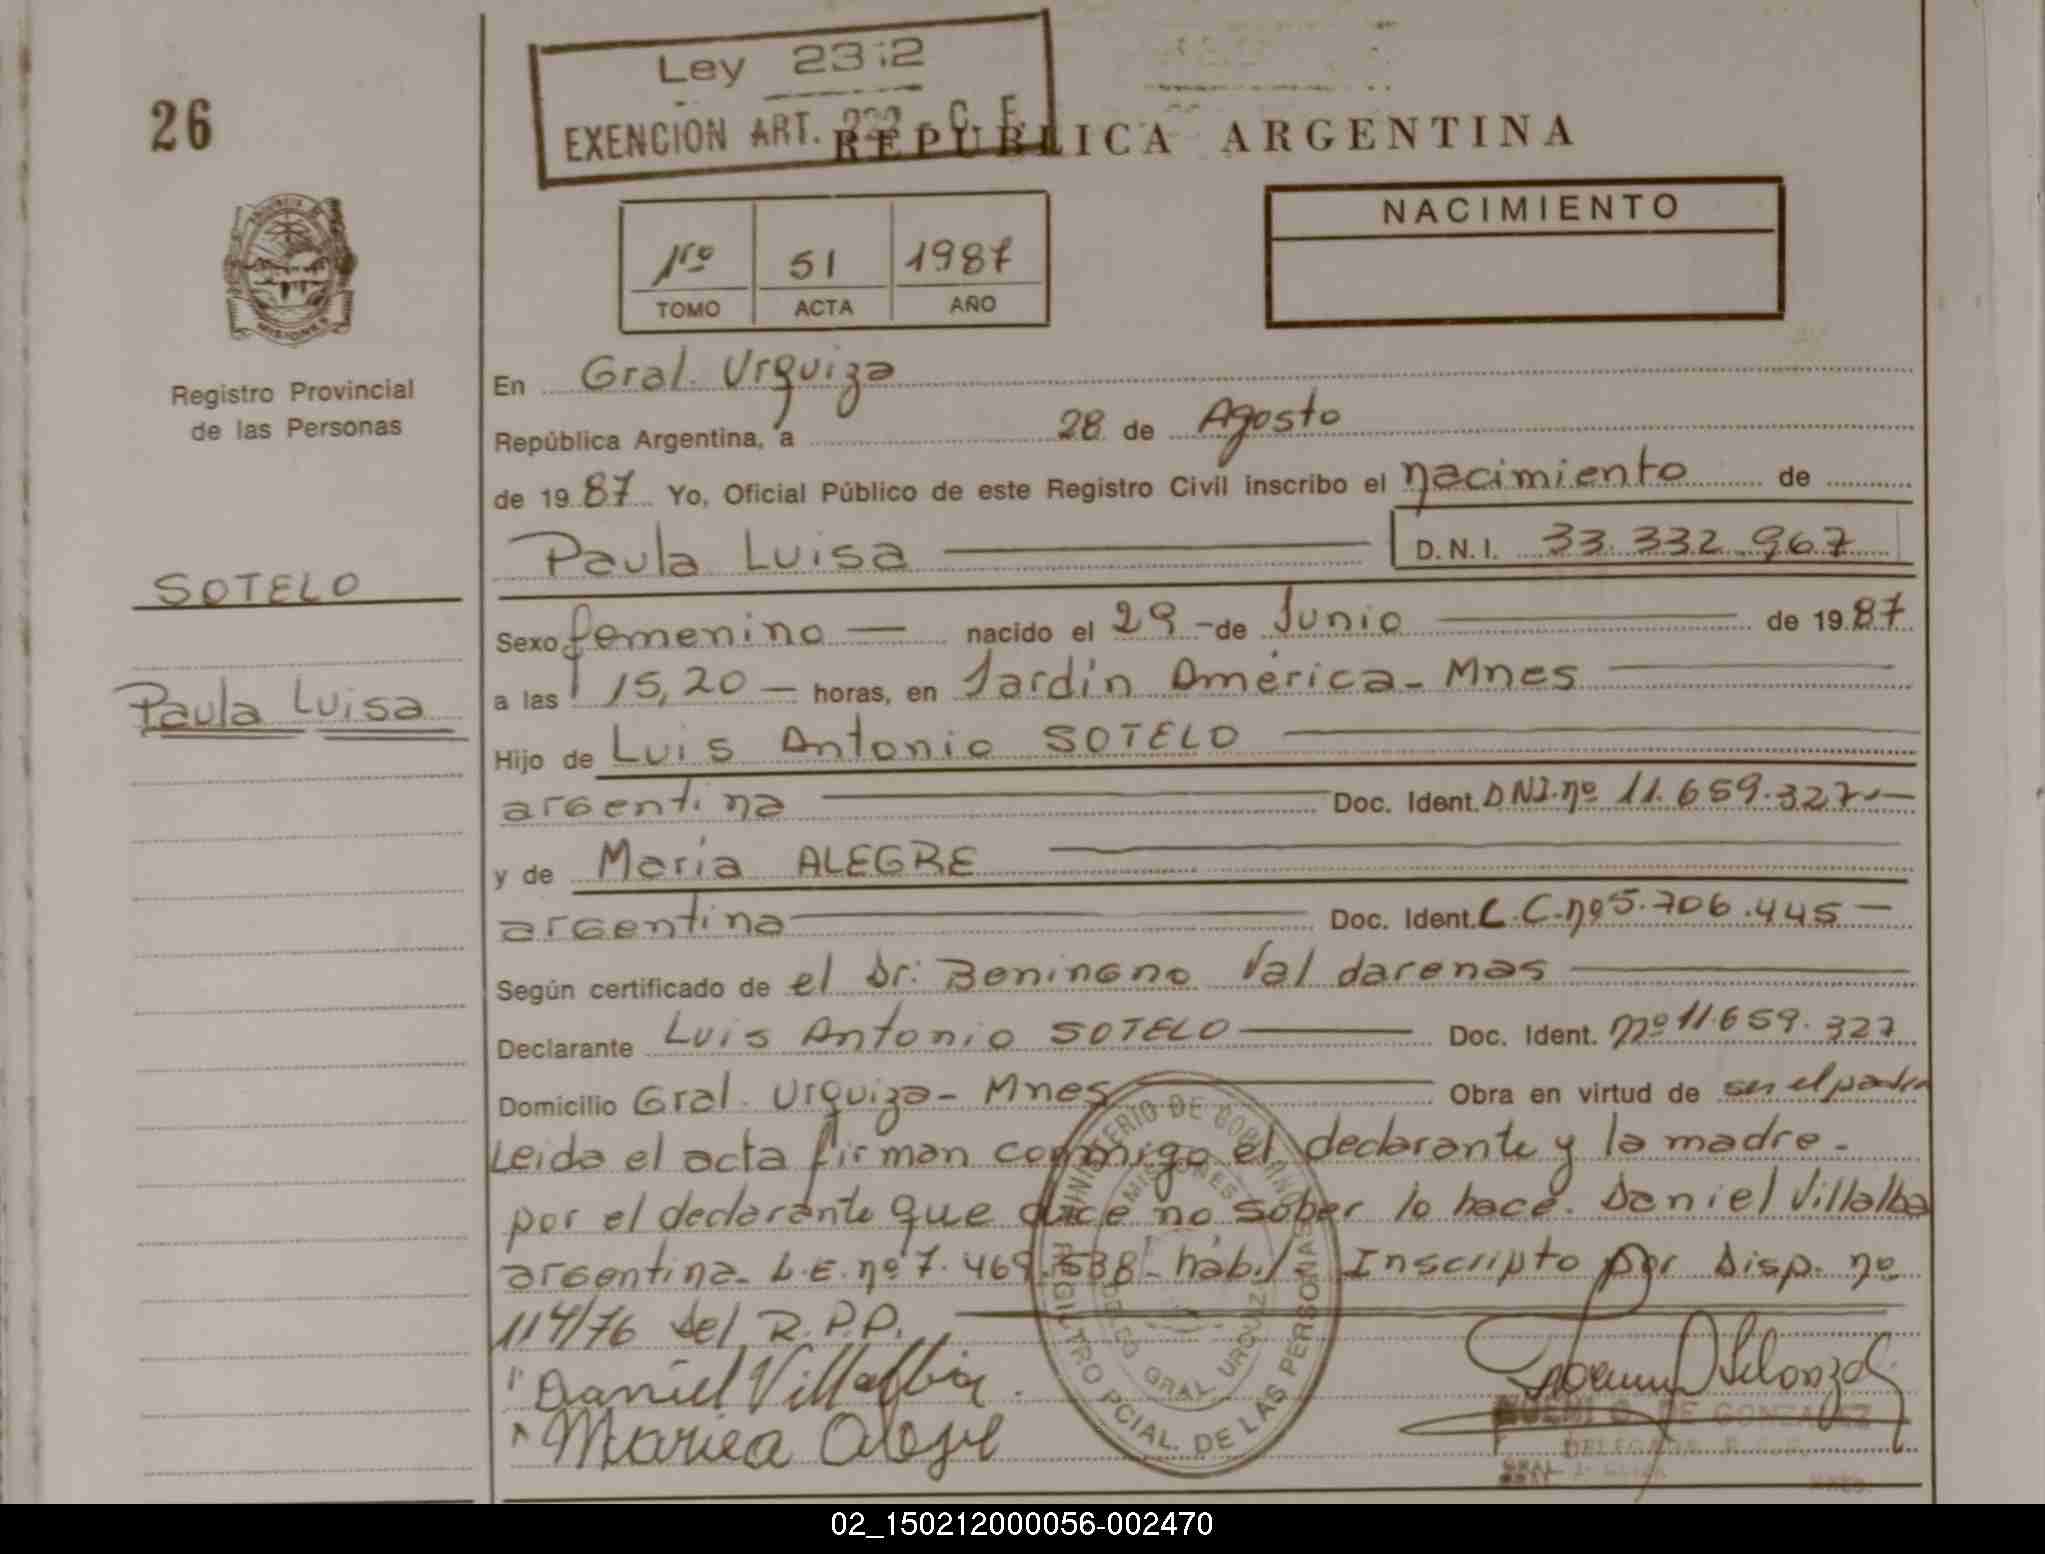 Ley 2312
EXENCION ART. C. F.
26
REPUBLICA ARGENTINA
NACIMIENTO
1ro 51 1987
TOMO ACTA AÑO
MISIONES
Registro Provincial
de las Personas
En Gral. Urquiza
República Argentina, a 28 de Agosto
de 1987 Yo, Oficial Público de este Registro Civil inscribo el nacimiento de
Paula Luisa D.N.I. 33.332.967
SOTELO
Paula Luisa
Sexo femenino nacido el 29 - de Junio de 1987
a las 15,20 horas, en Jardín América - Mnes
Hijo de Luis Antonio SOTELO
argentina Doc. Ident. DNI. nº 11.659.327.-
y de María ALEGRE
argentina Doc. Ident. L.C. nº 5.706.445 -
Según certificado de el Dr: Beningno Valdarenas
Declarante Luis Antonio SOTELO Doc. Ident. Mº 11.659.327
Domicilio Gral. Urquiza - Mnes Obra en virtud de ser el padre
Leida el acta firman conmigo el declarante y la madre -
por el declarante que dice no saber lo hace. Daniel Villalba
argentina - L.E. nº 7.469.538 - hábil - Inscripto por Disp. nº
114/76 del R.P.P.
Daniel Villalba
Mariea Alegre
MINISTERIO DE GOBIERNO
MISIONES
GRAL URQUIZA
REGISTRO PCIAL. DE LAS PERSONAS
DE GONZALEZ
DELEGADA
GRAL
02_150212000056-002470